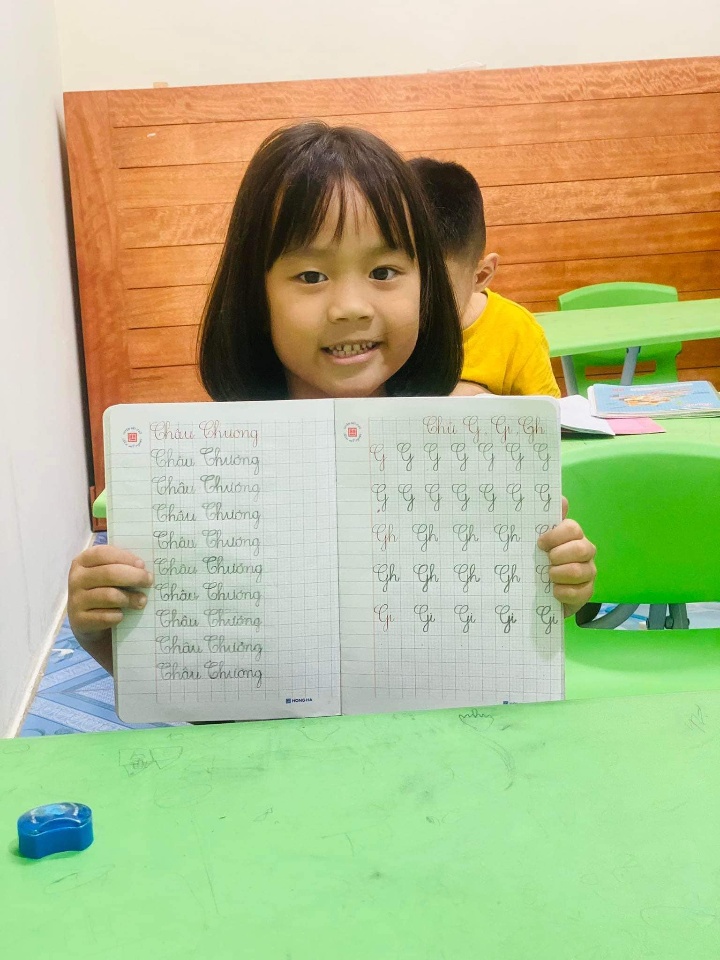 Châu Thương
Châu Thương
Châu Thương
Châu Thương
Châu Thương
Châu Thương
Châu Thương
Châu Thương
Châu Thương
Châu Thương
HONG HA
Chữ G, Gi, Gh
G G G G G G G
G G G G G G G
Gh Gh Gh Gh
Gh Gh Gh Gh
Gi Gi Gi Gi Gi